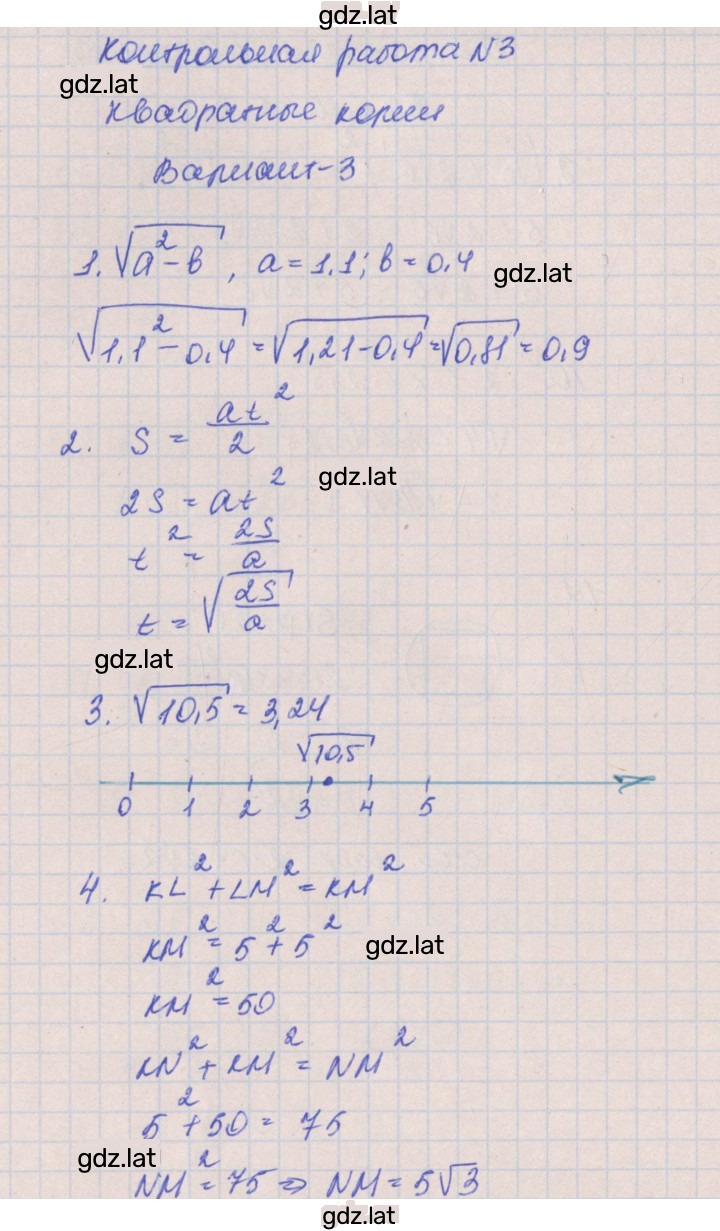 gdz.lat
Контрольная работа N3
gdz.lat
Квадратные корни
Вариант-3
1. √(a² - b), a = 1,1; b = 0,4
gdz.lat
√(1,1² - 0,4) = √(1,21 - 0,4) = √0,81 = 0,9
2. S = at²/2
gdz.lat
2S = at²
t² = 2S/a
t = √(2S/a)
gdz.lat
3. √10,5 = 3,24
√10,5
0 1 2 3 4 5
4. KL² + LM² = KM²
KM² = 5² + 5²
gdz.lat
KM² = 50
KN² + KM² = NM²
5² + 50 = 75
gdz.lat
NM² = 75 => NM = 5√3
gdz.lat